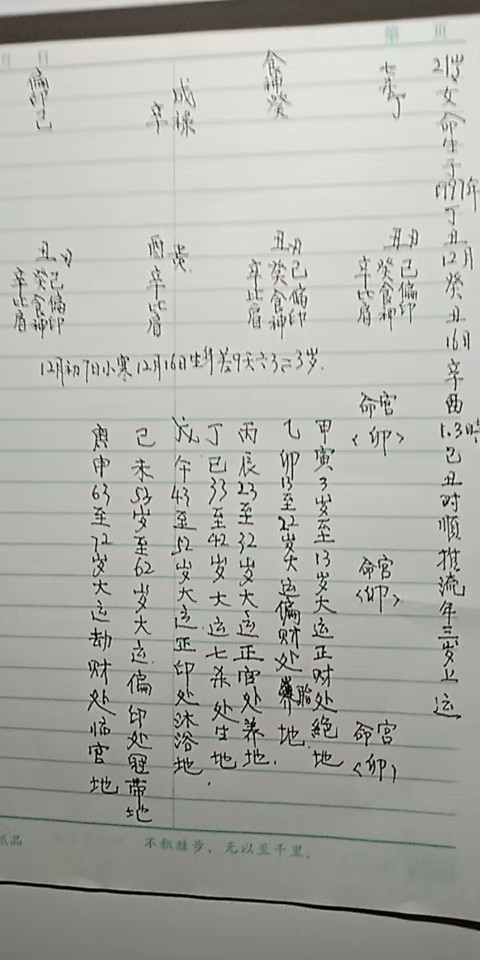 第 页
月 日
21岁女命生于1997年丁丑12月癸丑16日辛酉1.3時己丑时順推流年三岁上运
七杀丁
食神癸
戌禄
辛
偏印己
丑月
己偏印
癸食神
辛比肩
丑月
己偏印
癸食神
辛比肩
酉
辛比肩
丑月
己偏印
癸食神
辛比肩
12月初7日小寒12月16日生
命宫
<卯>
命宫
<卯>
命宫
<卯>
甲寅3岁至13岁大运正财处絕地
乙卯13至22岁大运偏财处 胎地.
丙辰23至32岁大运正官处养地.
丁巳33至42岁大运七杀处生地.
戊午43至52岁大运正印处沐浴地
己未53岁至62岁大运偏印处冠带地
庚申63至72岁大运劫财处临官地
纸品
不积跬步，无以至千里.